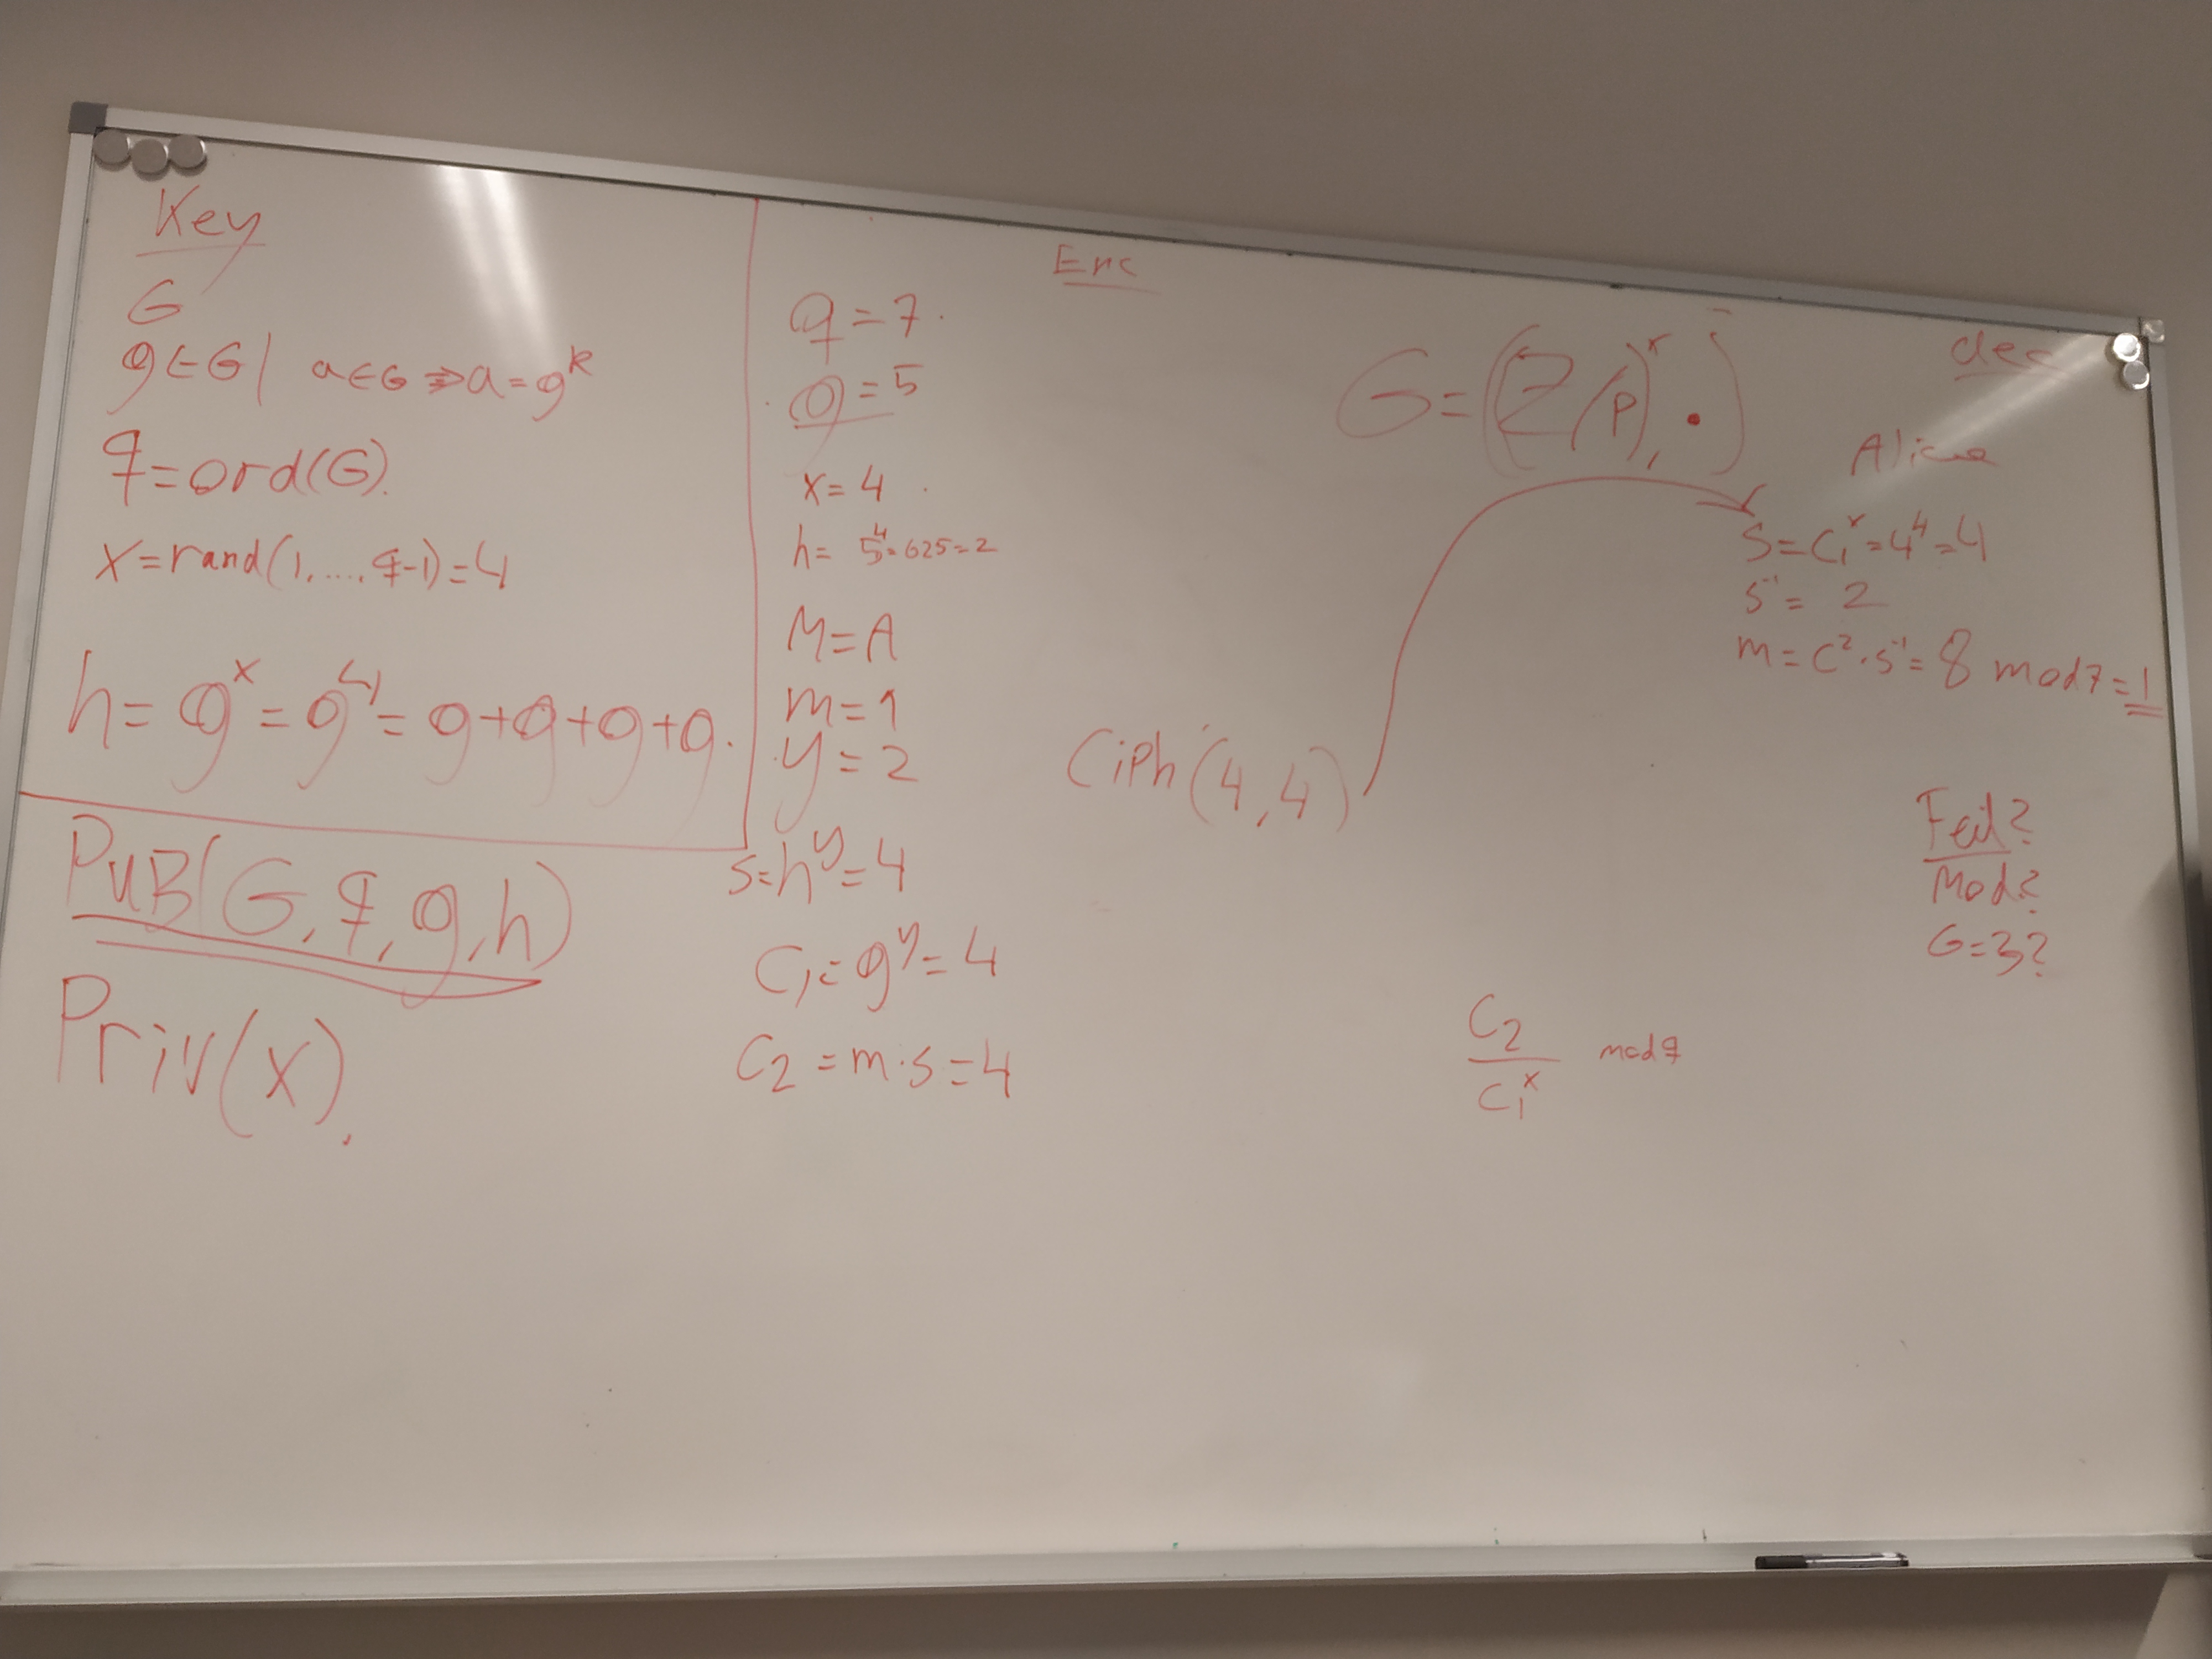 Key
G
g∈G | a∈G ⇒ a=g^k
q=ord(G).
x=rand(1,....,q-1)=4
h=g^x=g^4=g+g+g+g.
PuB(G,q,g,h)
Priv(x).
Enc
q=7.
g=5
x=4.
h= 5^4=625=2
M=A
m=1
y=2
s=h^y=4
C₁=g^y=4
C₂=m·s=4
Ciph(4,4)
G=((Z/p)^x, •)
dec
Alice
S=C₁^x=4^4=4
S^-1=2
m=C^2·s^-1=8 mod7=1
Feil?
Mod?
G=3?
C₂
C₁^x
mod q